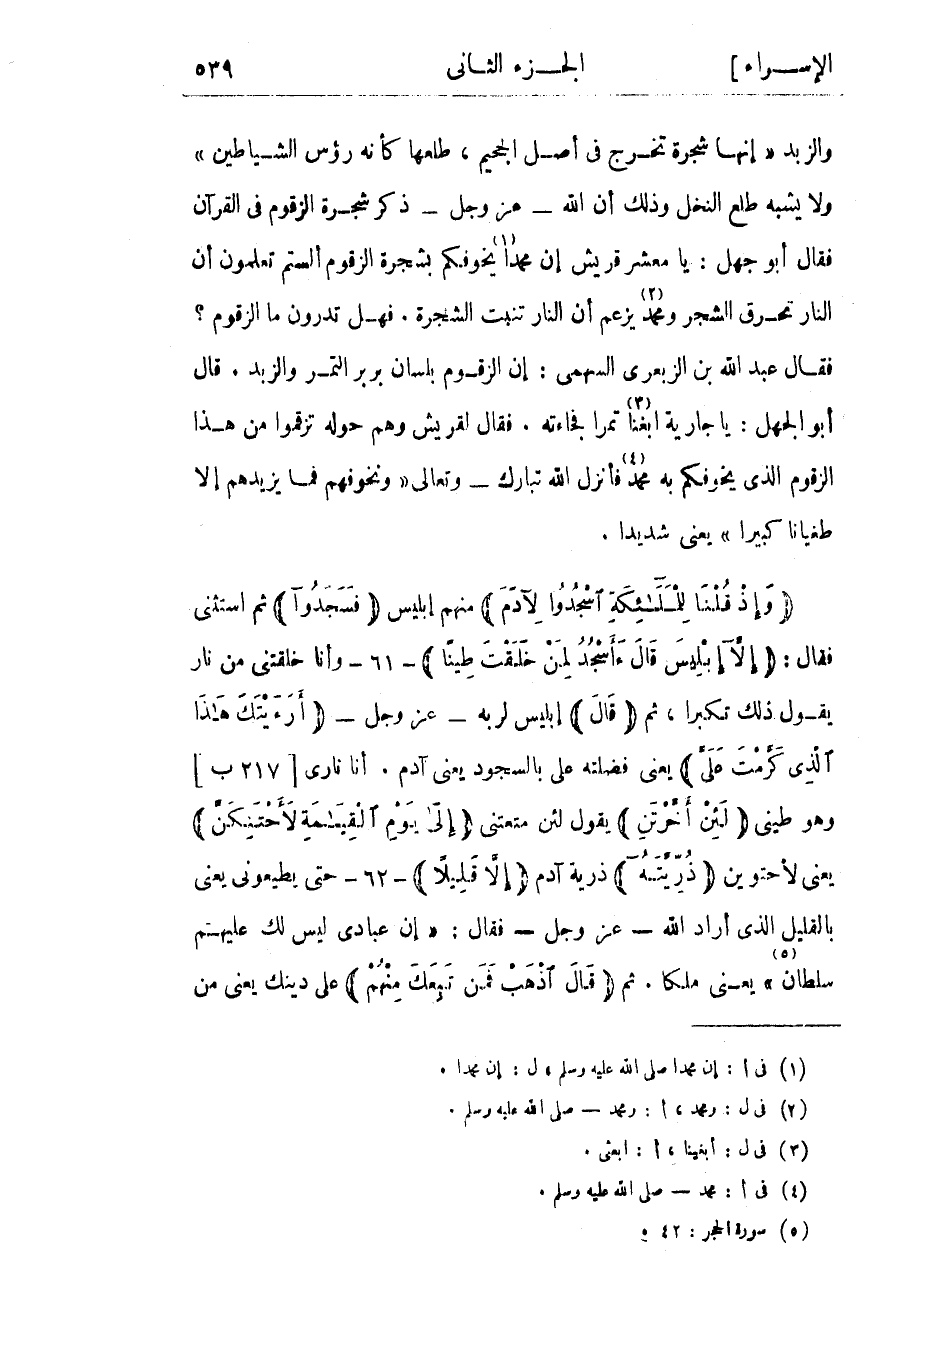 الإسراء] الجزء الثانى ٥٣٩
والزبد « إنها شجرة تخرج فى أصل الجحيم ، طلعها كأنه رؤس الشياطين »
ولا يشبه طلع النخل وذلك أن الله – عز وجل – ذكر شجرة الزقوم فى القرآن
فقال أبو جهل : يا معشر قريش إن محمدا(١) يخوفكم بشجرة الزقوم ألستم تعلمون أن
النار تحرق الشجر ومحمد(٢) يزعم أن النار تنبت الشجرة . فهل تدرون ما الزقوم ؟
فقال عبد الله بن الزبعرى السهمى : إن الزقوم بلسان بربر التمر والزبد . قال
أبو الجهل : يا جارية ابغنا(٣) تمرا فجاءته . فقال لقريش وهم حوله تزقموا من هذا
الزقوم الذى يخوفكم به محمد(٤) فأنزل الله تبارك – وتعالى« ونخوفهم فما يزيدهم إلا
طغيانا كبيرا » يعنى شديدا .
﴿ وَإِذْ قُلْنَا لِلْمَلَٰٓئِكَةِ ٱسْجُدُوا لِآدَمَ ﴾ منهم إبليس ﴿ فَسَجَدُوٓا ﴾ ثم استثنى
فقال : ﴿ إِلَّآ إِبْلِيسَ قَالَ ءَأَسْجُدُ لِمَنْ خَلَقْتَ طِينًا ﴾ - ٦١ - وأنا خلقتنى من نار
يقول ذلك تكبرا ، ثم ﴿ قَالَ ﴾ إبليس لربه – عز وجل – ﴿ أَرَءَيْتَكَ هَٰذَا
ٱلَّذِى كَرَّمْتَ عَلَىَّ ﴾ يعنى فضلته على بالسجود يعنى آدم . أنا نارى [ ٢١٧ ب ]
وهو طينى ﴿ لَئِنْ أَخَّرْتَنِ ﴾ يقول لئن متعتنى ﴿ إِلَىٰ يَوْمِ ٱلْقِيَٰمَةِ لَأَحْتَنِكَنَّ ﴾
يعنى لأحتوين ﴿ ذُرِّيَّتَهُۥٓ ﴾ ذرية آدم ﴿ إِلَّا قَلِيلًا ﴾ - ٦٢ - حتى يطيعونى يعنى
بالقليل الذى أراد الله – عز وجل – فقال : « إن عبادى ليس لك عليهم
سلطان(٥) » يعنى ملكا . ثم ﴿ قَالَ ٱذْهَبْ فَمَن تَبِعَكَ مِنْهُمْ ﴾ على دينك يعنى من
(١) فى أ : إن محمدا صلى الله عليه وسلم ، ل : إن محمدا .
(٢) فى ل : ومحمد ، أ : ومحمد – صلى الله عليه وسلم .
(٣) فى ل : أبغينا ، أ : ابعثى .
(٤) فى أ : محمد – صلى الله عليه وسلم .
(٥) سورة الحجر : ٤٢ .